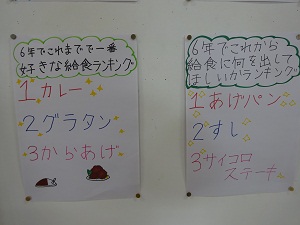 6年でこれまでで一番
好きな給食ランキング
1カレー
2グラタン
3からあげ
6年でこれから
給食に何を出して
ほしいかランキング
1あげパン
2すし
3サイコロ
ステーキ